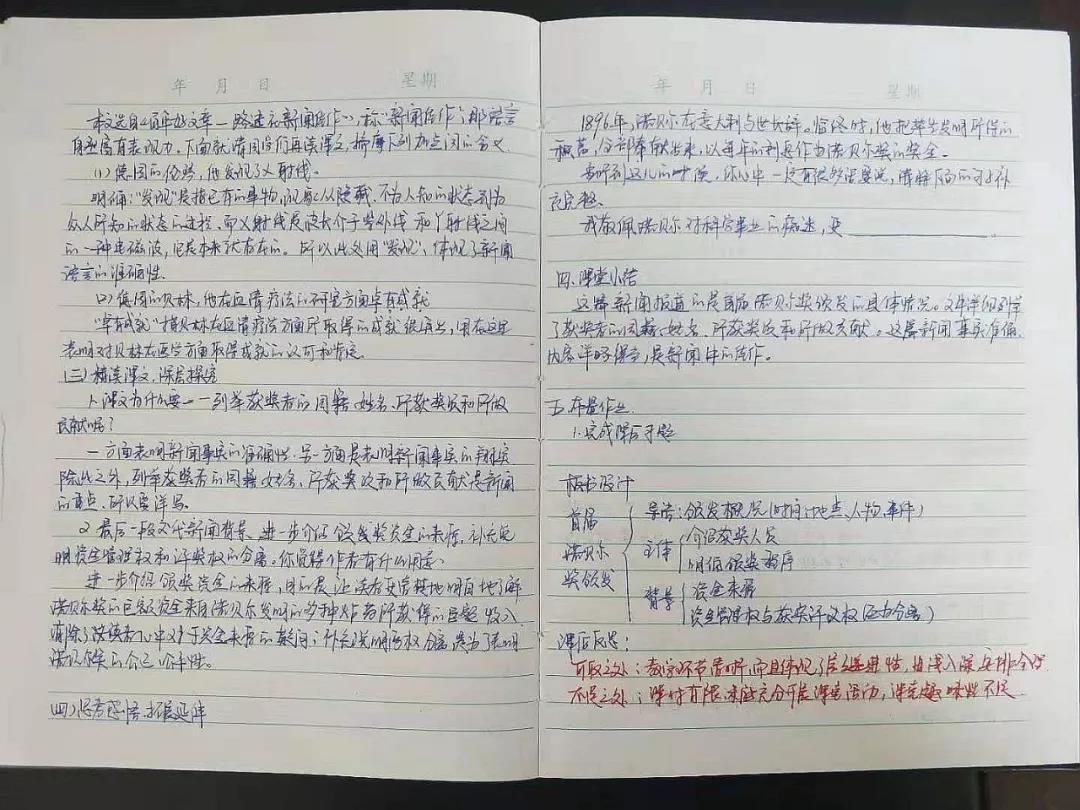 年 月 日 星期
本文选自《百年好文章—路透社新闻佳作》,称"新闻佳作",那语言
自然富有表现力。下面就请同学们再读课文,揣摩下列加点词的含义
(1)德国的伦琴,他发现了X射线。
明确:"发现"是指已有的事物,现象从隐藏、不为人知的状态到为
众人所知的状态的过程。而X射线是波长介于紫外线和γ射线之间
的一种电磁波,它是本来就存在的。所以此处用"发现",体现了新闻
语言的准确性。
(2)德国的贝林,他在血清疗法的研究方面卓有成就
"卓有成就"指贝林在血清疗法方面所取得的成就很突出,用在这里
表明对贝林在医学方面取得成就的认可和肯定。
(三)精读课文,深层探究
1、课文为什么要一一列举获奖者的国籍、姓名、所获奖项和所做
贡献呢?
一方面表明新闻事实的准确性,另一方面是表明新闻事实的翔实
除此之外,列举获奖者的国籍、姓名、所获奖项和所做贡献是新闻
的重点,所以要详写。
2、最后一段交代新闻背景,进一步介绍颁奖奖资金的来源,补充说
明资金管理权和评奖权的分离。你觉得作者有什么用意?
进一步介绍颁奖资金的来源,目的是让读者更清楚地明白地了解
诺贝尔奖的巨额资金来自诺贝尔发明的多种炸药所获得的巨额收入,
消除了读者心中对于资金来源的疑问;补充说明两权分离,是为了表明
诺贝尔奖的公正公平性。
(四)思考感悟,拓展延伸
年 月 日 星期
1896年,诺贝尔在意大利与世长辞。临终时,他把毕生发明所得的
积蓄,全部奉献出来,以每年的利息作为诺贝尔奖的奖金。
当听到这儿的时候,你心中一定有很多话要说,请将下面的句子补
充完整。
我敬佩诺贝尔对科学事业的痴迷,更
四、课堂小结
这篇新闻报道的是首届诺贝尔奖颁发的具体情况。文中详细列举
了获奖者的国籍、姓名、所获奖项和所做贡献。这篇新闻事实准确,
内容详略得当,是新闻中的佳作。
五、布置作业
1、完成课后习题
板书设计
首届
诺贝尔
奖颁发
导语:颁发概况(时间、地点、人物、事件)
主体
介绍获奖人员
明确颁奖程序
背景
资金来源
资金管理权与获奖评议权(两权分离)
课后反思:
可取之处:教学环节清晰,而且体现了层递进性,由浅入深,安排合理
不足之处:课时有限,未能充分开展课堂活动,课堂趣味性不足